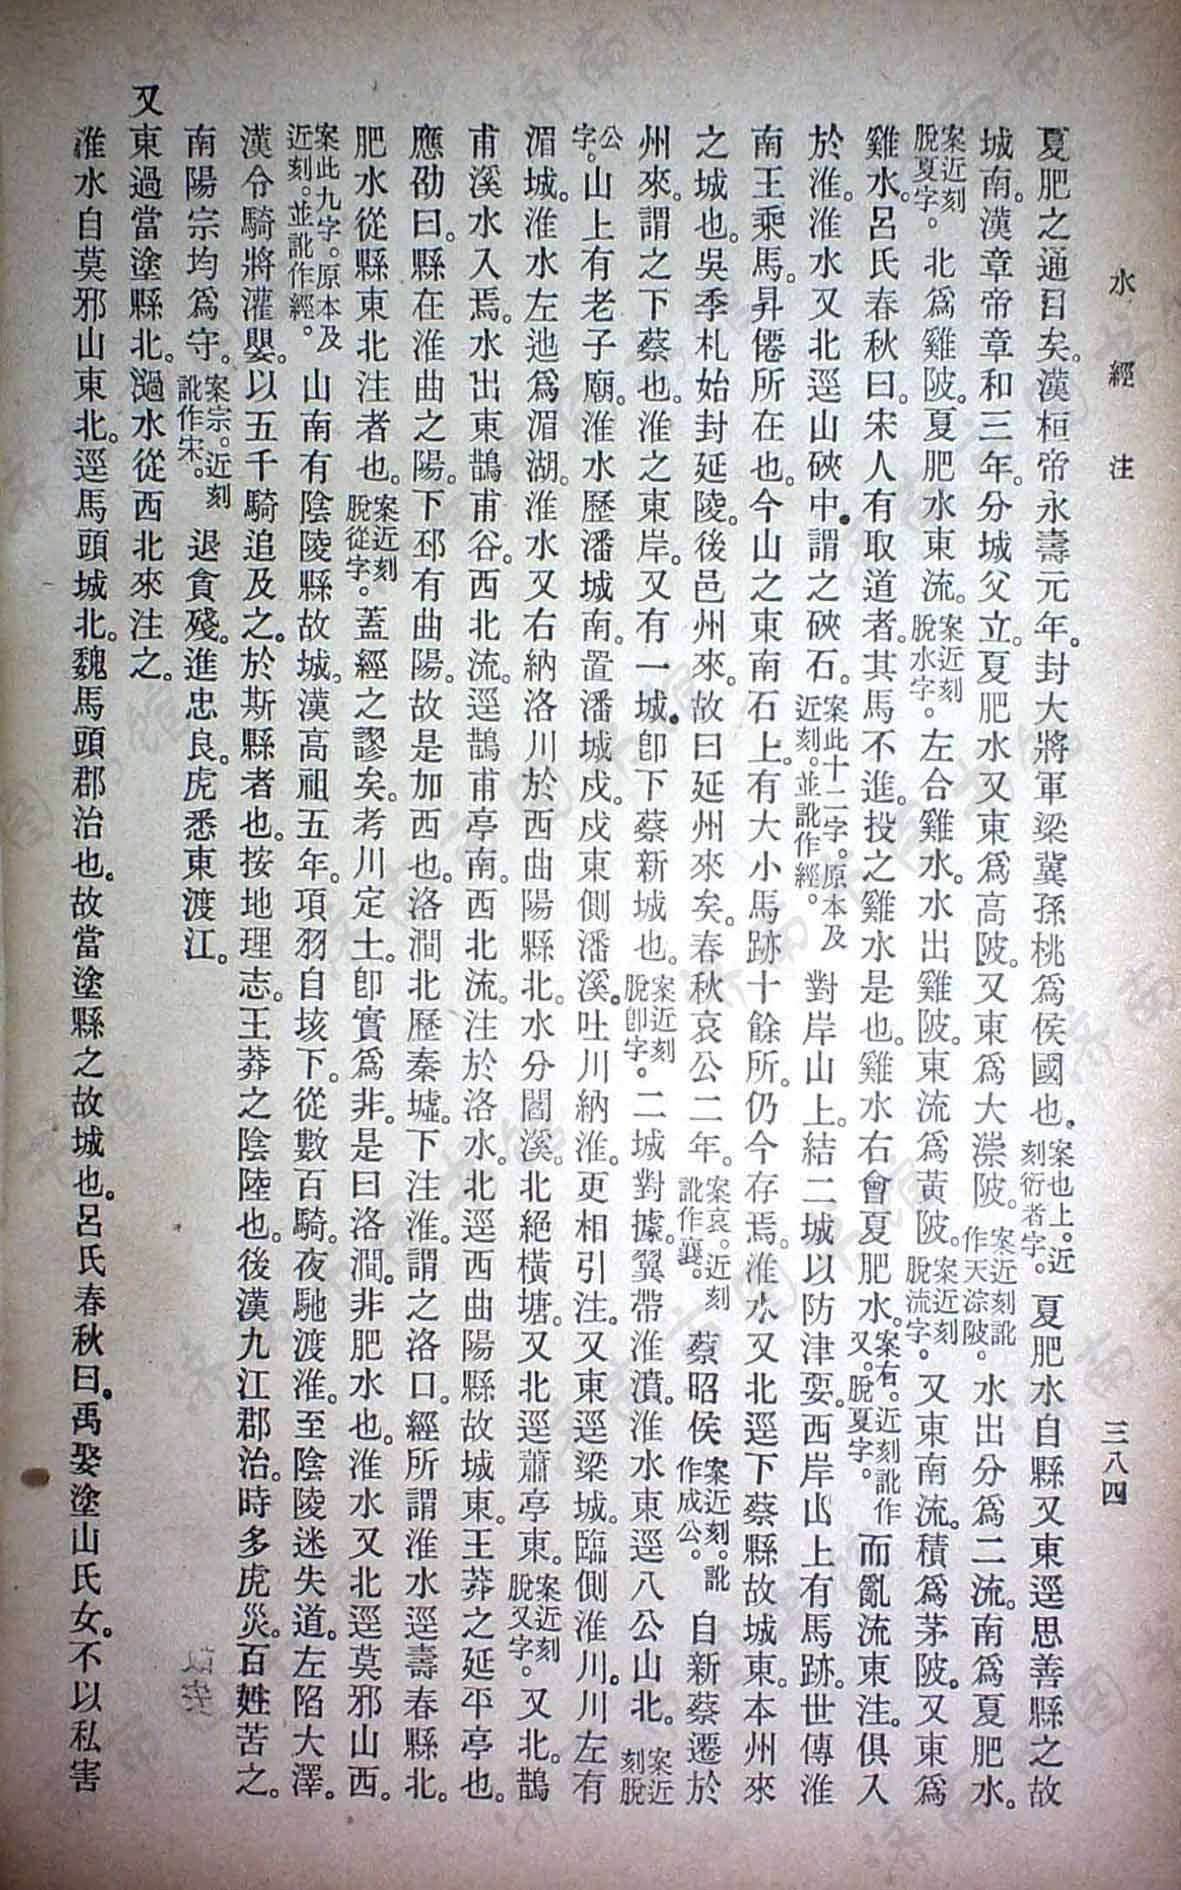 水經注
三八四
夏肥之通目矣。漢桓帝永壽元年。封大將軍梁冀孫桃爲侯國也。案也上。近刻衍者字。夏肥水自縣又東逕思善縣之故
城南。漢章帝章和三年。分城父立。夏肥水又東爲高陂。又東爲大漴陂。案近刻訛作天淙陂。水出分爲二流。南爲夏肥水。
案近刻脫夏字。北爲雞陂。夏肥水東流。案近刻脫水字。左合雞水。水出雞陂。東流爲黃陂。案近刻脫流字。又東南流。積爲茅陂。又東爲
雞水。呂氏春秋曰。宋人有取道者。其馬不進。投之雞水是也。雞水右會夏肥水。案右。近刻訛作又。脫夏字。而亂流東注。俱入
於淮。淮水又北逕山硤中。謂之硤石。案此十二字。原本及近刻。並訛作經。對岸山上。結二城以防津要。西岸山上有馬跡。世傳淮
南王乘馬。昇僊所在也。今山之東南石上。有大小馬跡十餘所。仍今存焉。淮水又北逕下蔡縣故城東。本州來
之城也。吳季札始封延陵。後邑州來。故曰延州來矣。春秋哀公二年。案哀。近刻訛作襄。蔡昭侯案近刻。訛作成公。自新蔡遷於
州來。謂之下蔡也。淮之東岸。又有一城。卽下蔡新城也。案近刻脫卽字。二城對據。翼帶淮濆。淮水東逕八公山北。案近刻脫
公字。山上有老子廟。淮水歷潘城南。置潘城戍。戍東側潘溪。吐川納淮。更相引注。又東逕梁城。臨側淮川。川左有
湄城。淮水左迆爲湄湖。淮水又右納洛川於西曲陽縣北。水分閻溪。北絕橫塘。又北逕蕭亭東。案近刻脫又字。又北。鵲
甫溪水入焉。水出東鵲甫谷。西北流。逕鵲甫亭南。西北流。注於洛水。北逕西曲陽縣故城東。王莽之延平亭也。
應劭曰。縣在淮曲之陽。下邳有曲陽。故是加西也。洛澗北歷秦墟。下注淮。謂之洛口。經所謂淮水逕壽春縣北。
肥水從縣東北注者也。案近刻脫從字。蓋經之謬矣。考川定土。卽實爲非。是曰洛澗。非肥水也。淮水又北逕莫邪山西。
案此九字。原本及近刻。並訛作經。山南有陰陵縣故城。漢高祖五年。項羽自垓下。從數百騎。夜馳渡淮。至陰陵迷失道。左陷大澤。
漢令騎將灌嬰。以五千騎追及之。於斯縣者也。按地理志。王莽之陰陸也。後漢九江郡治。時多虎災。百姓苦之。
南陽宗均爲守。案宗。近刻訛作宋。退貪殘。進忠良。虎悉東渡江。
又東過當塗縣北。濄水從西北來注之。
淮水自莫邪山東北。逕馬頭城北。魏馬頭郡治也。故當塗縣之故城也。呂氏春秋曰。禹娶塗山氏女。不以私害